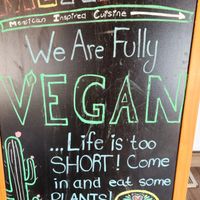 Mexican Inspired Cuisine
We Are Fully
VEGAN
...Life is too
SHORT! Come
in and eat some
PLANTS!